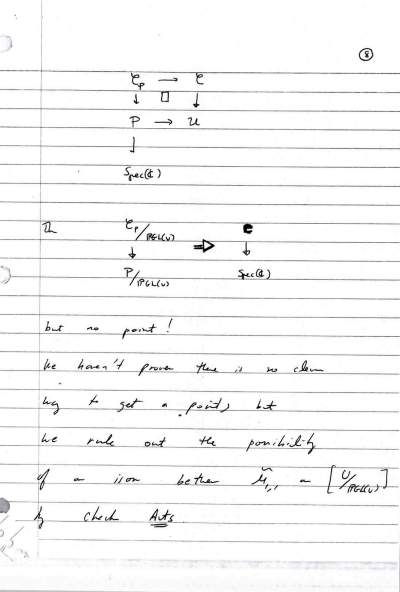 ⑧
𝒞_P → 𝒞
↓ □ ↓
P → U
↓
Spec(ℂ)
𝒞_P/PGL(V) ⇒ 𝒞
↓ ↓
P/PGL(V) Spec(ℂ)
but no point!
We haven't proven there is no clever
way to get a point, but
we rule out the possibility
of an isom between M̃₁,₁ [U/PGL(V)]
by check Auts